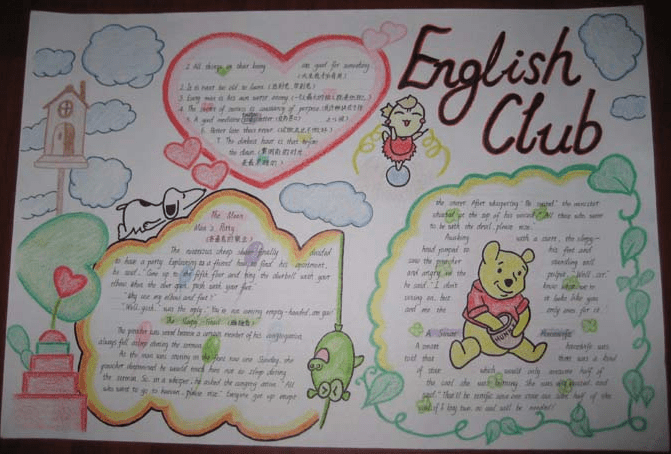 English
Club
1. All things in their being are good for something.
(天生我才必有用)
2. It is never too old to learn. (活到老,学到老)
3. Every man is his own worst enemy. (一个人最大的敌人就是他自己)
4. The secret of success is constancy of purpose.
5. A good medicine tastes bitter. (良药苦口)
6. Better late than never.
7. The darkest hour is that before
the dawn. (黎明前的时分
是最黑暗的)
The Mean
Man's Party
The notorious cheap skate finally decided
to have a party. Explaining to a friend how to find his apartment,
he said, "Come up to the fifth floor and ring the doorbell with your
elbow. When the door open, push with your foot."
"Why use my elbow and foot?"
"Well, gosh," was the reply, "You're not coming empty-handed, are you?"
The Sleepy
The preacher was vexed because a certain member of his congregation
always fell asleep during the sermon.
As the man was snoring in the front row one Sunday, the
preacher determined he would teach him not to sleep during
the sermon. So, in a whisper, he asked the congregation. "All
who want to go to heaven, please rise." Everyone got up except
the snorer. After whispering "Be seated", the minister
shouted at the top of his voice, "All those who want
to be with the devil, please rise."
Awaking with a start, the sleepy-
head jumped to his feet and
saw the preacher standing tall
and angry in the pulpit. "Well, sir,"
he said, "I don't know what we're
voting on, but it looks like you
and me are the only ones for it."
HUNNY
A Smart Housewife
A smart housewife was
told that there was a kind
of stove which would only consume half of
the coal she was burning. She was very excited, and
said, "That'll be terrific. Since one stove can save half of the
coal, if I buy two, no coal will be needed!"